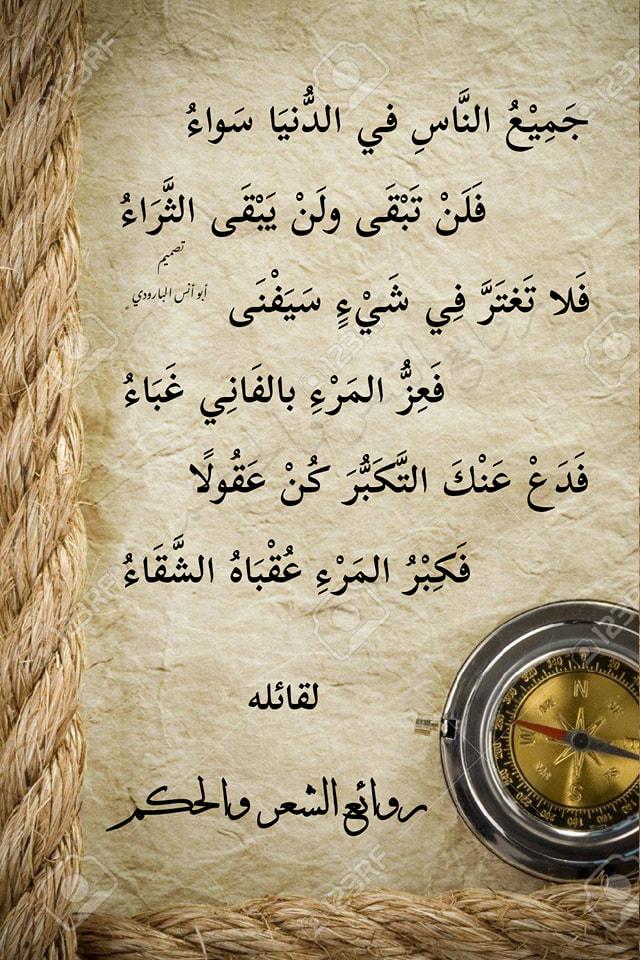 جَمِيْعُ النَّاسِ في الدُّنيَا سَواءُ
فَلَنْ تَبْقَى ولَنْ يَبْقَى الثَّرَاءُ
تصميم
أبو أنس البارودي
فَلا تَغتَرَّ فِي شَيْءٍ سَيَفْنَى
فَعِزُّ المَرْءِ بالفَانِي غَبَاءُ
فَدَعْ عَنْكَ التَّكَبُّرَ كُنْ عَقُولًا
فَكِبْرُ المَرْءِ عُقْبَاهُ الشَّقَاءُ
لقائله
روائع الشعر والحكم
N
W
S
123RF